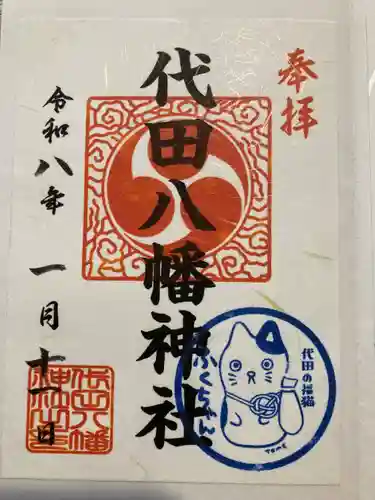 奉拝
代田八幡神社
令和八年 一月十一日
代田八幡
神社
代田の招猫
ふくちゃん